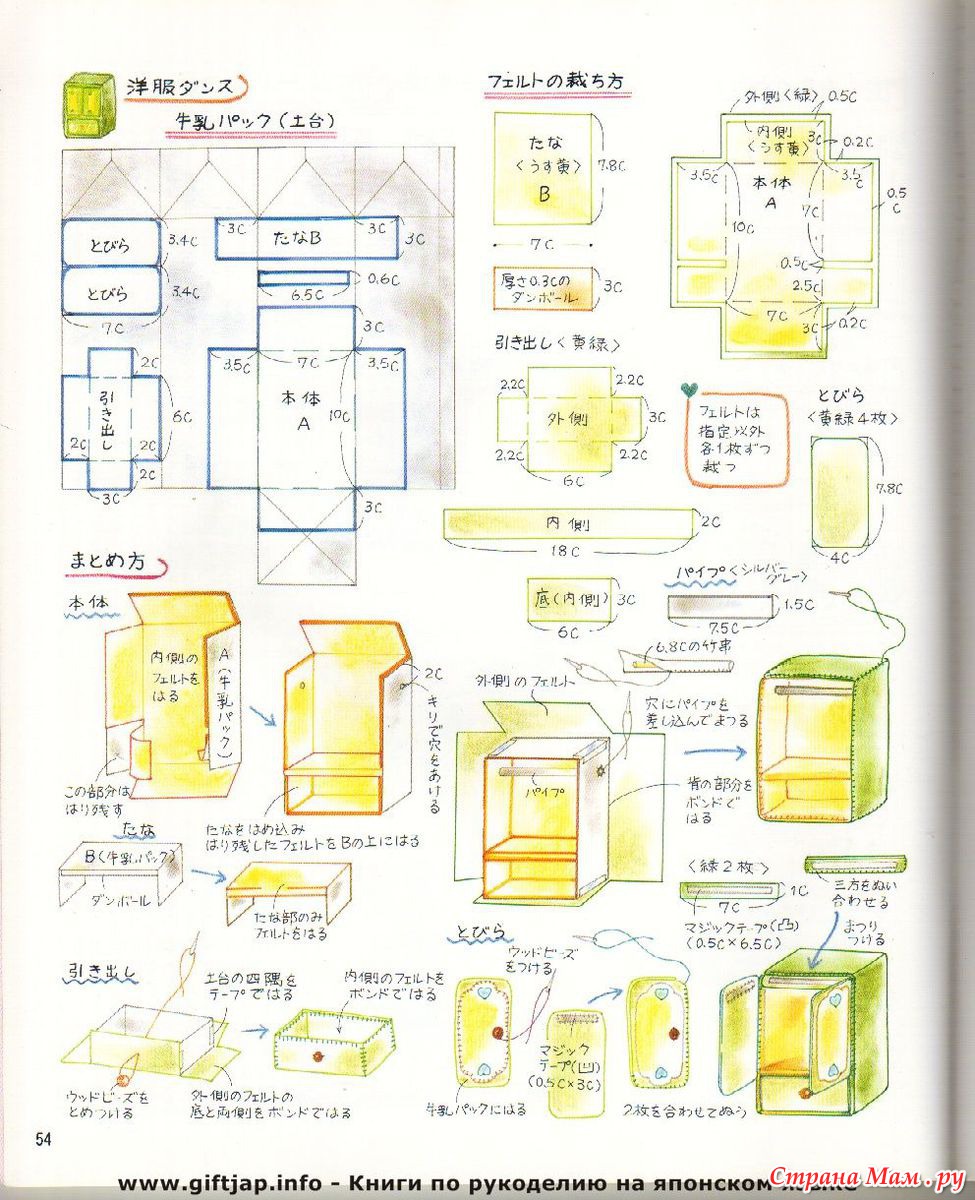 洋服ダンス
牛乳パック(土台)
とびら
3.4C
とびら
3.4C
7C
3C
たなB
3C
3C
0.6C
6.5C
3C
3.5C
7C
3.5C
本体
A
10C
3C
2C
引き出し
6C
2C
2C
2C
3C
フェルトの裁ち方
たな
〈うす黄〉
B
7.8C
7C
厚さ0.3Cの
ダンボール
3C
外側〈緑〉
0.5C
内側
〈うす黄〉
3C
0.2C
3.5C
本体
A
3.5C
0.5
C
7C
10C
0.5C
2.5C
7C
3C
0.2C
引き出し〈黄緑〉
2.2C
2.2C
外側
3C
2.2C
2.2C
6C
フェルトは
指定以外
各1枚ずつ
裁つ
とびら
〈黄緑4枚〉
7.8C
4C
内側
2C
18C
底(内側)
3C
6C
パイプ〈シルバー
グレー〉
1.5C
7.5C
6.8Cの竹串
まとめ方
本体
内側の
フェルトを
はる
A(牛乳パック)
この部分は
はり残す
2C
キリで穴をあける
たなをはめ込み
はり残したフェルトをBの上にはる
外側のフェルト
パイプ
穴にパイプを
差し込んでまつる
背の部分を
ボンドで
はる
たな
B(牛乳パック)
ダンボール
たな部のみ
フェルトをはる
〈緑2枚〉
1C
7C
マジックテープ(凸)
(0.5C×6.5C)
三方をぬい
合わせる
まつり
つける
引き出し
土台の四隅を
テープではる
内側のフェルトを
ボンドではる
ウッドビーズを
とめつける
外側のフェルトの
底と両側をボンドではる
とびら
ウッドビーズ
をつける
マジック
テープ(凹)
(0.5C×3C)
牛乳パックにはる
2枚を合わせてぬう
54
www.giftjap.info - Книги по рукоделию на японском языке
Страна Мам.ру